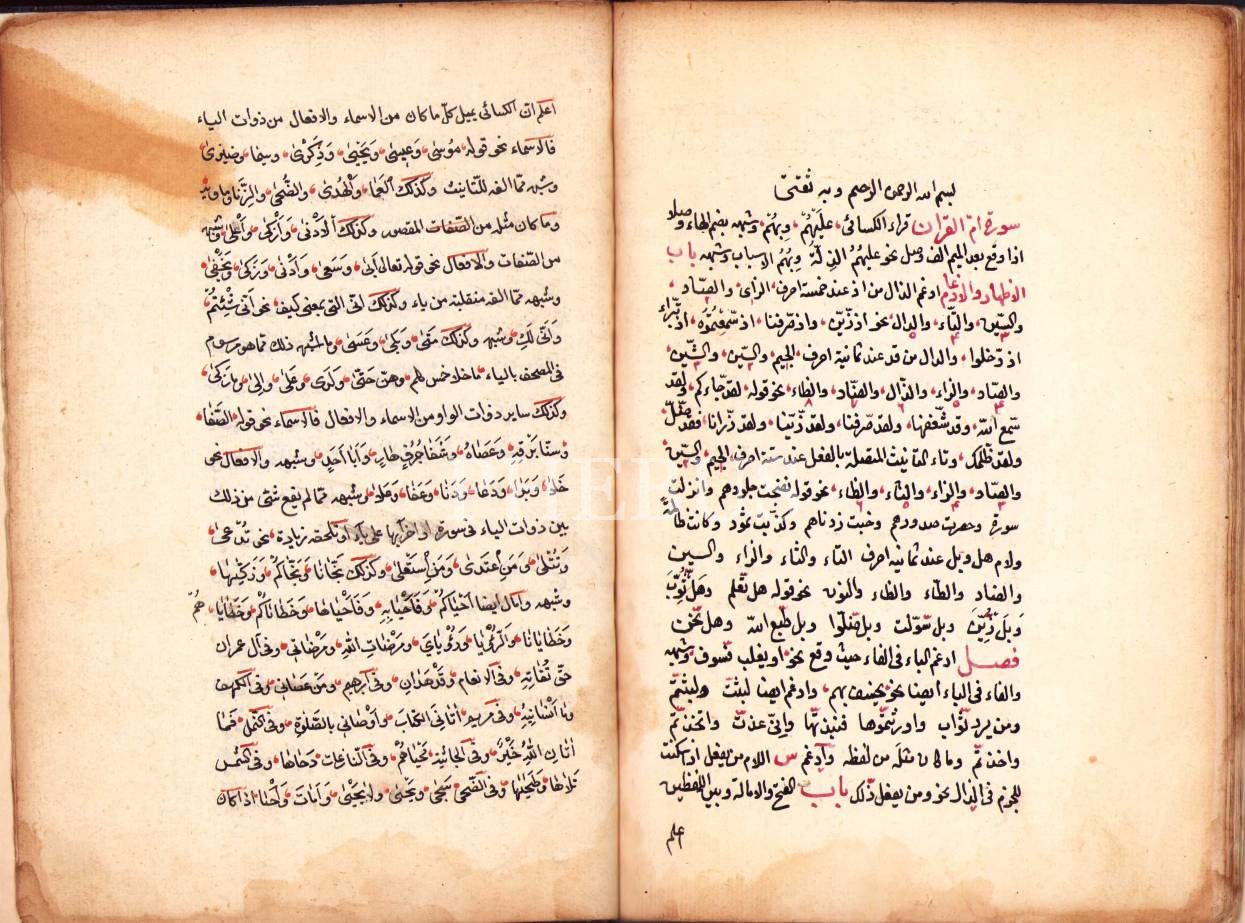 بسم الله الرحمن الرحيم وبه ثقتى
سورة ام القران قراء الكسائى عليهم وبهم وشبهه بضم الهاء وصلا
اذا وقع بعد الميم الف وصل نحو عليهم الذلة وبهم الاسباب وشبهه باب
الاظهار والادغام ادغم الذال من اذ عند خمسة احرف الزاى والصاد
والسين والتاء والدال نحو اذ زين واذ صرفنا اذ سمعتموه اذ تبراء
اذ دخلوا والدال من قد عند ثمانية احرف الجيم والسين والشين
والصاد والزاء والذال والضاد والظاء نحو قوله لقد جاءكم ولقد
سمع الله وقد شغفها ولقد صرفنا ولقد زينا ولقد ذرانا فقد ضل
ولقد ظلمك وتاء التانيث المتصلة بالفعل عند ستة احرف الجيم والسين
والصاد والزاء والثاء والظاء نحو قوله نضجت جلودهم وانزلت
سورة وحصرت صدورهم وخبت زدناهم وكذبت ثمود وكانت ظالمة
ولام هل وبل عند ثمانية احرف التاء والثاء والزاء والسين
والضاد والطاء والظاء والنون نحو قوله هل تعلم وهل ثوب
وبل زين وبل سولت وبل ضلوا وبل طبع الله وهل نحن
فصل ادغم الباء فى الفاء حيث وقع نحو او يغلب فسوف وشبهه
والفاء فى الباء ايضا نحو نخسف بهم وادغم ايضا لبثت ولبثتم
ومن يرد ثواب واورثتموها فنبذتها وانى عذت واتخذتم
واخذتم وما كان مثله من لفظه وادغم س اللام من يفعل اذا سكنت
للجزم فى الذال نحو ومن يفعل ذلك باب الفتح والامالة وبين اللفظين
اعلم
اعلم ان الكسائى يميل كل ما كان من الاسماء والافعال من ذوات الياء
فالاسماء نحو قوله موسى وعيسى ويحيى وذكرى وسيما وضيزى
وشبهه مما الفه للتانيث وكذلك العمى والهدى والضحى والزنا
وما كان مثله من الصفات المقصور وكذلك الادنى وازكى واعلى وشبهه
من الصفات والافعال نحو قوله تعالى ابى وسعى وادنى وزكى ويخفى
وشبهه مما الفه منقلبة من ياء وكذلك انى التى بمعنى كيف نحو انى شئتم
وانى لك وشبهه وكذلك متى وبلى وعسى وما اشبه ذلك مما هو مرسوم
فى المصحف بالياء ما خلا خمس كلم وهن حتى ولدى وعلى والى وما زكى
وكذلك ساير ذوات الواو من الاسماء والافعال فالاسماء نحو قوله الصفا
وسنا برقه وعصاه وشفا جرف هار وابا احد وشبهه والافعال نحو
خلا وبدا ودعا ودنا وعفا وعلا وشبهه مما لم يقع شئ من ذلك
بين ذوات الياء فى سورة اواخر آيها على ياء او تلحقه زيادة نحو تدعى
وتتلى ومن اعتدى ومن استعلى وكذلك نجانا ونجاكم وزكيها
وشبهه وامال ايضا احياكم وفاحيا به وفاحياها وخطاياكم وخطاياهم
وخطايانا والرؤيا ورؤياى ومرضات الله ومرضاتى وفى آل عمران
حق تقاته وفى الانعام وقد هدان وفى ابرهيم ومن عصانى وفى الكهف
وما انسانيه وفى مريم اتانى الكتاب واوصانى بالصلوة وفى النمل فما
اتان الله خير وفى الجاثية محياهم وفى النازعات دحاها وفى الشمس
تلاها وطحيها وفى الضحى سجى ونحيى ولا يحيى وامات واحيا اذا كان